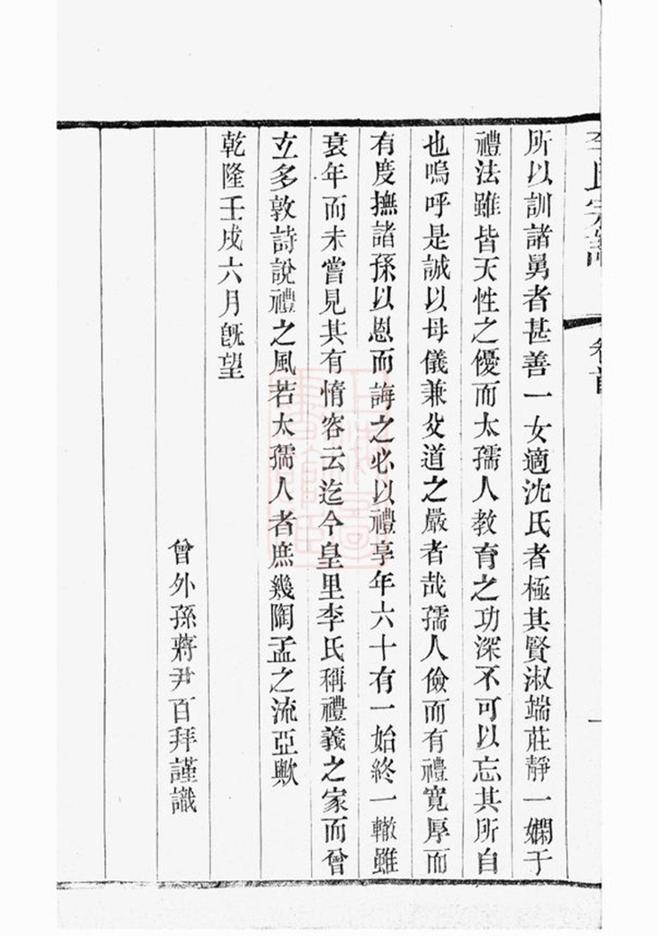 李氏宗譜 卷首 一
所以訓諸舅者甚善一女適沈氏者極其賢淑端莊靜一嫻于
禮法雖皆天性之優而太孺人教育之功深不可以忘其所自
也嗚呼是誠以母儀兼父道之嚴者哉孺人儉而有禮寬厚而
有度撫諸孫以恩而誨之必以禮享年六十有一始終一轍雖
衰年而未嘗見其有惰容云迄今皇里李氏稱禮義之家而曾
玄多敦詩說禮之風若太孺人者庶幾陶孟之流亞歟
乾隆壬戌六月既望
曾外孫蔣尹百拜謹識